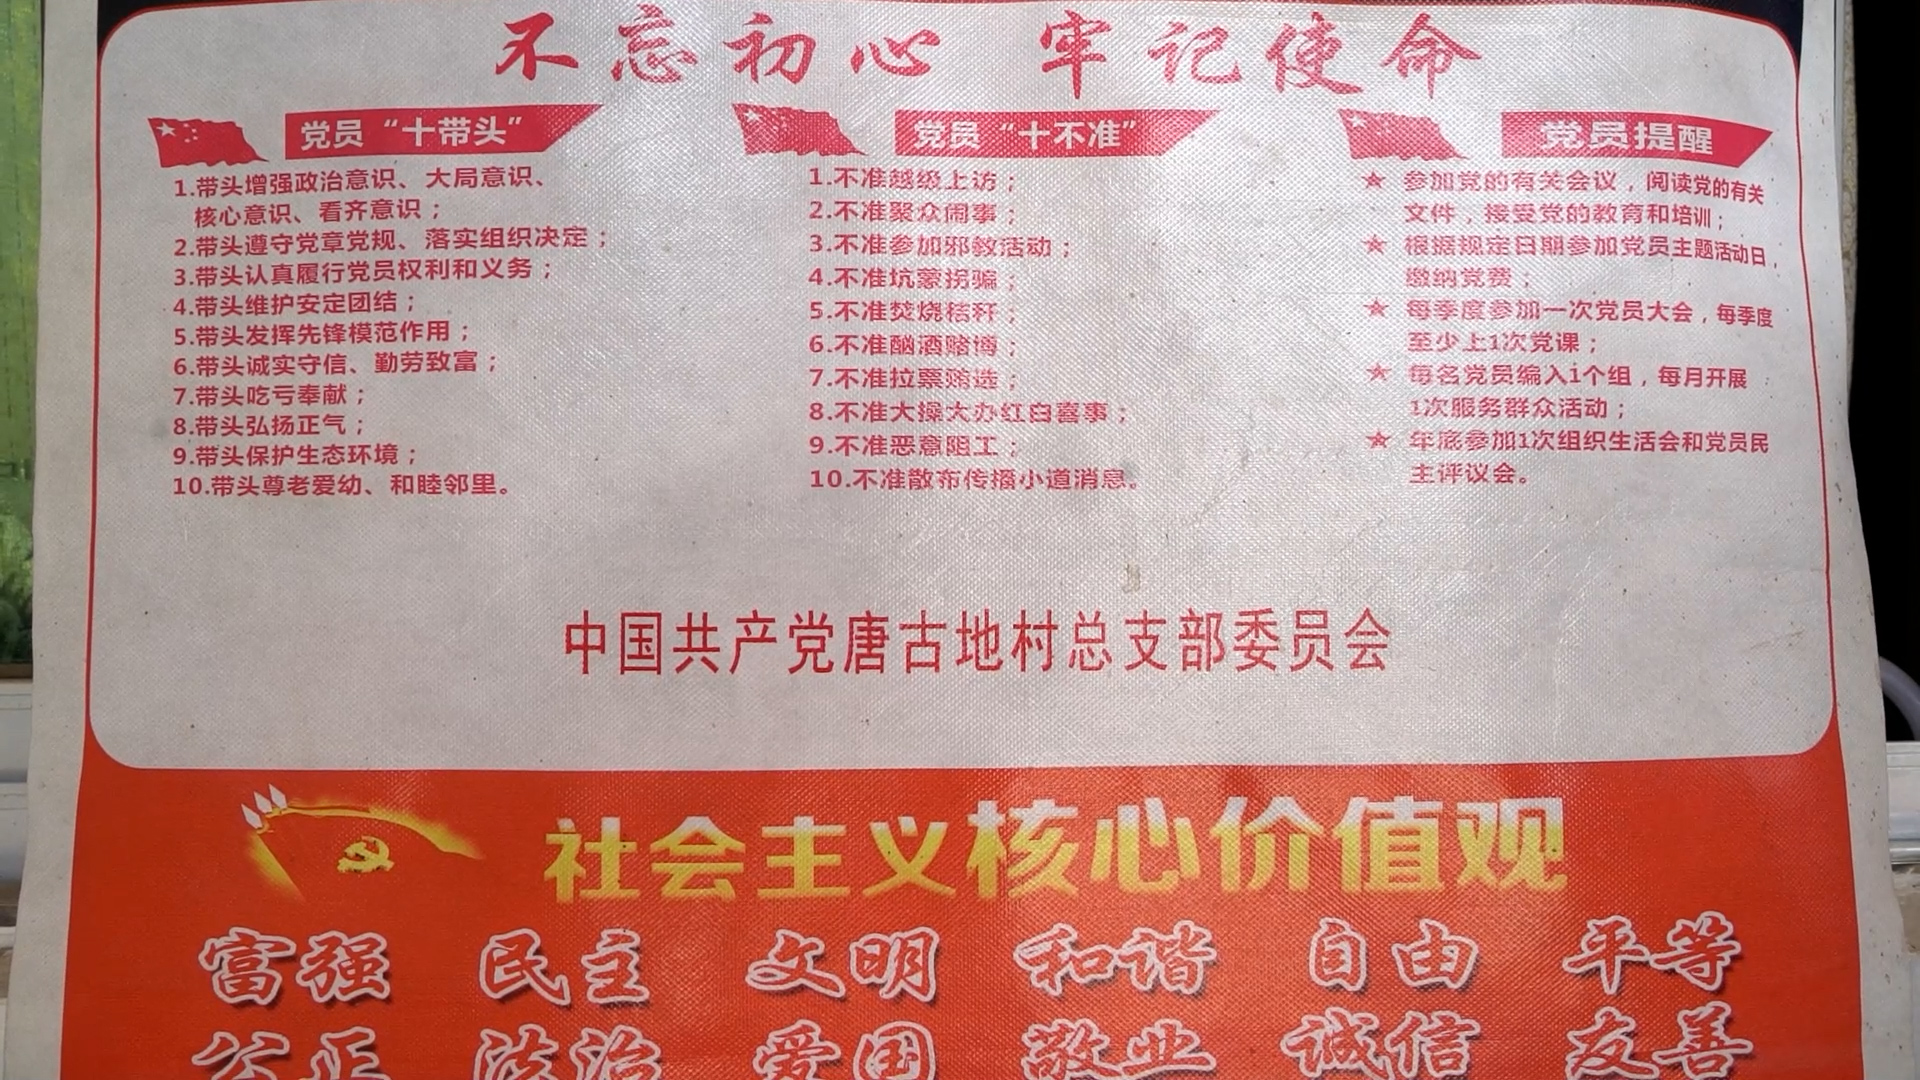 不忘初心 牢记使命
党员“十带头”
1.带头增强政治意识、大局意识、
核心意识、看齐意识；
2.带头遵守党章党规、落实组织决定；
3.带头认真履行党员权利和义务；
4.带头维护安定团结；
5.带头发挥先锋模范作用；
6.带头诚实守信、勤劳致富；
7.带头吃亏奉献；
8.带头弘扬正气；
9.带头保护生态环境；
10.带头尊老爱幼、和睦邻里。
党员“十不准”
1.不准越级上访；
2.不准聚众闹事；
3.不准参加邪教活动；
4.不准坑蒙拐骗；
5.不准焚烧秸秆；
6.不准酗酒赌博；
7.不准拉票贿选；
8.不准大操大办红白喜事；
9.不准恶意阻工；
10.不准散布传播小道消息。
党员提醒
★ 参加党的有关会议，阅读党的有关
文件，接受党的教育和培训；
★ 根据规定日期参加党员主题活动日，
缴纳党费；
★ 每季度参加一次党员大会，每季度
至少上1次党课；
★ 每名党员编入1个组，每月开展
1次服务群众活动；
★ 年底参加1次组织生活会和党员民
主评议会。
中国共产党唐古地村总支部委员会
社会主义核心价值观
富强 民主 文明 和谐 自由 平等
公正 法治 爱国 敬业 诚信 友善